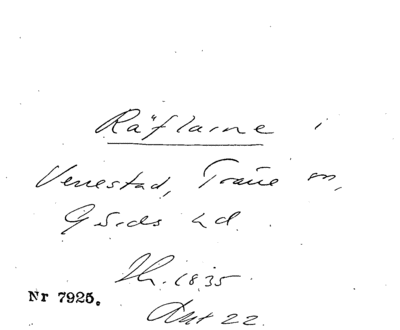 Räflarne i
Venestad, Träne sn,
Gärds hd.
Th. 1835.
Nr 7925.
Ant 22.